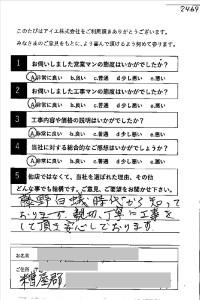 2464
このたびはアイエ株式会社をご利用頂きありがとうございます。
みなさまのご意見をもとに、より喜んで頂けるよう努めて参ります。
1 お伺いしました営業マンの態度はいかがでしたか?
A.非常に良い b.良い c.普通 d.少し悪い e.悪い
2 お伺いしました工事マンの態度はいかがでしたか?
A.非常に良い b.良い c.普通 d.少し悪い e.悪い
3 工事内容や価格の説明はいかがでしたか?
A.非常に良い b.良い c.普通 d.少し悪い e.悪い
4 当社に対する総合的なご感想はいかがでしょうか?
A.非常に良い b.良い c.普通 d.少し悪い e.悪い
5 他店ではなくて、当社を選ばれた理由、その他
どんな事でも結構です。ご意見、ご要望をお聞かせ下さい。
藤野白蟻時代から知って
おります。親切、丁寧に工事を
して頂き安心しております
お名前
ご住所
糟屋郡